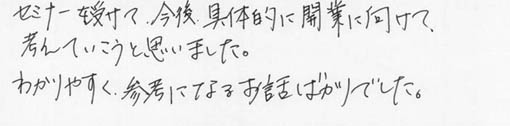 セミナーを受けて、今後、具体的に開業に向けて、
考えていこうと思いました。
わかりやすく、参考になるお話ばかりでした。